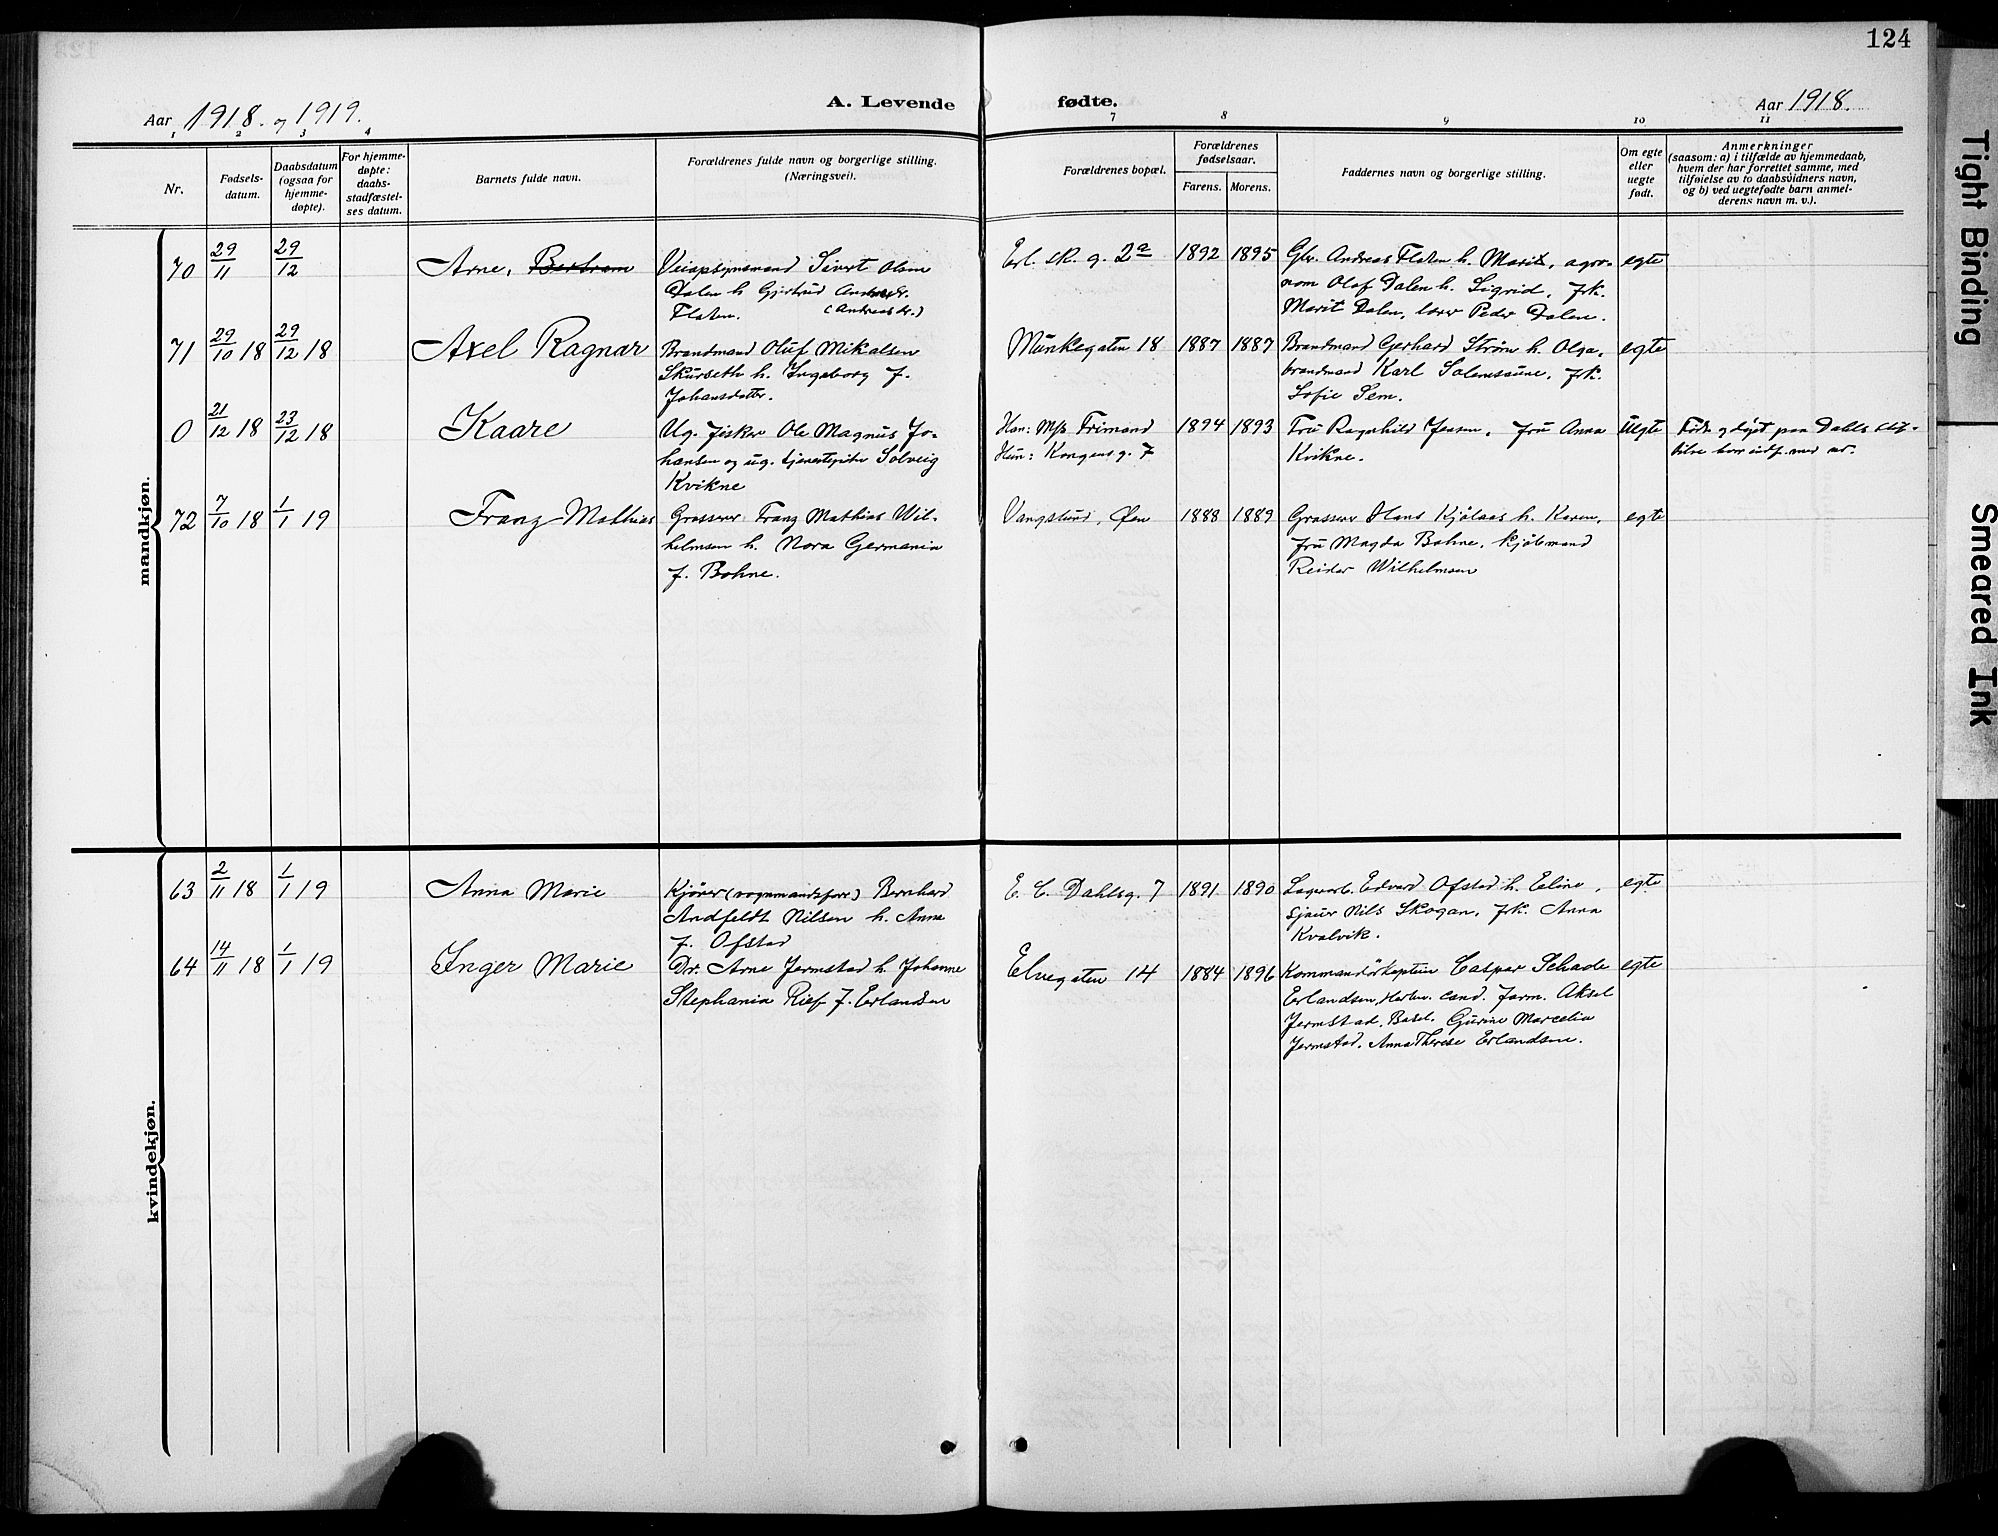 124
Aar 1918. og 1919.
A. Levende fødte.
Aar 1918.
1 2 3 4 7 8 9 10 11
Nr.
Fødsels-
datum.
Daabsdatum
(ogsaa for
hjemme-
døpte).
For hjemme-
døpte:
daabs-
stadfæstel-
ses datum.
Barnets fulde navn.
Forældrenes fulde navn og borgerlige stilling.
(Næringsvei).
Forældrenes bopæl.
Forældrenes
fødselsaar.
Farens. Morens.
Faddernes navn og borgerlige stilling.
Om egte
eller
uegte
født.
Anmerkninger
(saasom: a) i tilfælde av hjemmedaab,
hvem der har forrettet samme, med
tilføielse av to daabsvidners navn,
og b) ved uegtefødte barn anmel-
derens navn m. v.).
mandkjøn.
70 29/11 29/12 Arne, Bertram
Veiopsynsmand Sivert Olsen
Dalen h. Gjertrud Andersdr.
Flaten. (Andreasdr.)
Erl. sk. g. 2a 1892 1895
Gbr. Andreas Flaten h. Marit, agro-
nom Olaf Dalen h. Sigrid, frk.
Marit Dalen, lærer Peder Dalen.
egte
71 29/10 18 29/12 18 Axel Ragnar
Brandmand Oluf Mikalsen
Skurseth h. Ingeborg f.
Johansdatter.
Munkegaten 18 1887 1887
Brandmand Gerhard Strøm h. Olga,
brandmand Karl Solemsaune, frk.
Sofie Sem.
egte
0 21/12 18 23/12 18 Kaare
Ug. fisker Ole Magnus Jo-
hansen og ug. tjenestepike Solveig
Kvikne
Han: M/k Frimand
Hun: Kongensg. 7
1894 1893
Fru Ragnhild Jensen, fru Anna
Kvikne.
Uegte
Født og døpt paa Dahls stif-
telse
72 7/10 18 1/1 19 Franz Mathias
Grosserer Franz Mathias Wil-
helmsen h. Nora Germania
f. Bohne.
Vangslund, Øen 1888 1889
Grosserer Hans Kjølaas h. Karen,
fru Magda Bohne, kjøbmand
Reidar Wilhelmsen
egte
kvindekjøn.
63 2/11 18 1/1 19 Anna Marie
Kjører (vognmandsforr.) Bernhard
Andfeldt Nilsen h. Anna
f. Ofstad
E. C. Dahlsg. 7 1891 1890
Lagerarb. Edvard Ofstad h. Eline,
sjauer Nils Skogan, frk. Anna
Kvalvik.
egte
64 14/11 18 1/1 19 Inger Marie
Dr. Arne Jermstad h. Johanne
Stephania Rief f. Erlandsen
Elvegaten 14 1884 1896
Kommandørkaptein Caspar Schade
Erlandsen, Horten. cand. farm. Aksel
Jermstad, Basel. Gurine Marcelia
Jermstad. Anna Therese Erlandsen.
egte
Tight Binding
Smeared Ink